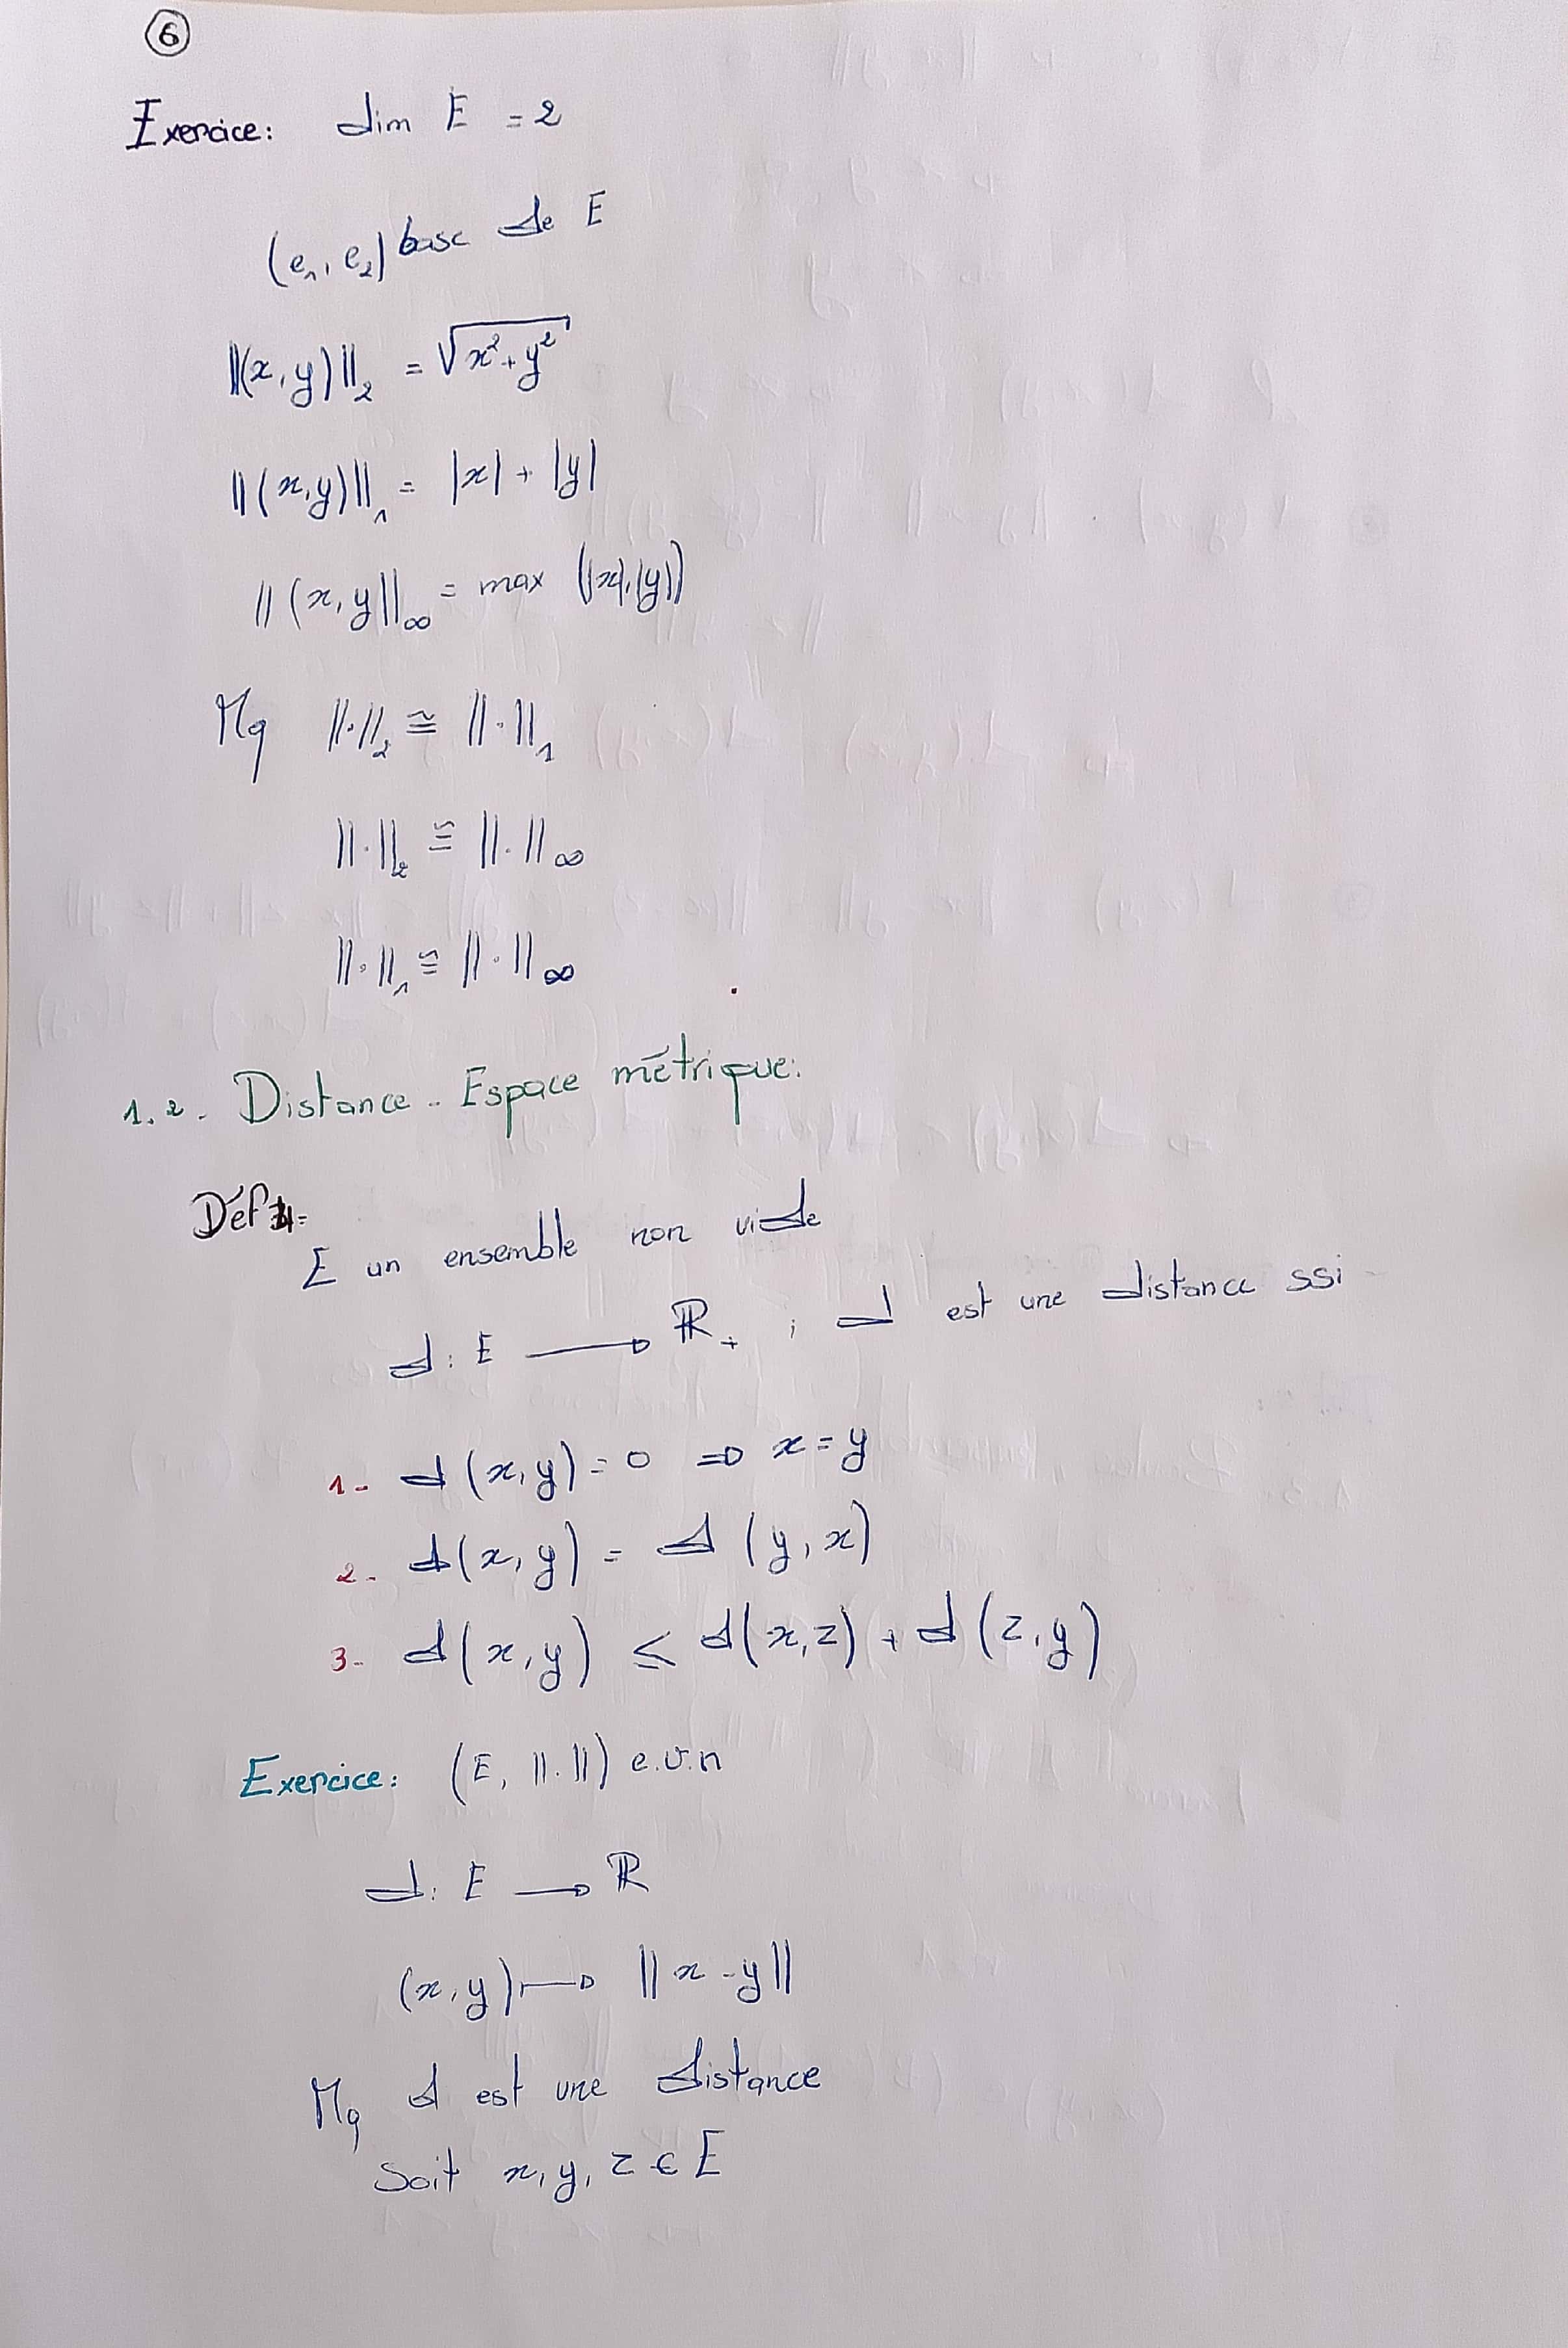 6
Exercice: dim E = 2
(e₁, e₂) base de E
||(x, y)||₂ = √(x² + y²)
||(x, y)||₁ = |x| + |y|
||(x, y||∞ = max (|x|, |y|)
Mq ||·||₂ ≅ ||·||₁
||·||₂ ≅ ||·||∞
||·||₁ ≅ ||·||∞
1.2. Distance - Espace métrique:
Déf 1:
E un ensemble non vide
d: E → ℝ₊ ; d est une distance ssi
1- d(x, y) = 0 ⇒ x = y
2- d(x, y) = d(y, x)
3- d(x, y) ≤ d(x, z) + d(z, y)
Exercice: (E, ||·||) e.v.n
d: E → ℝ
(x, y) ↦ ||x - y||
Mq d est une distance
Soit x, y, z ∈ E